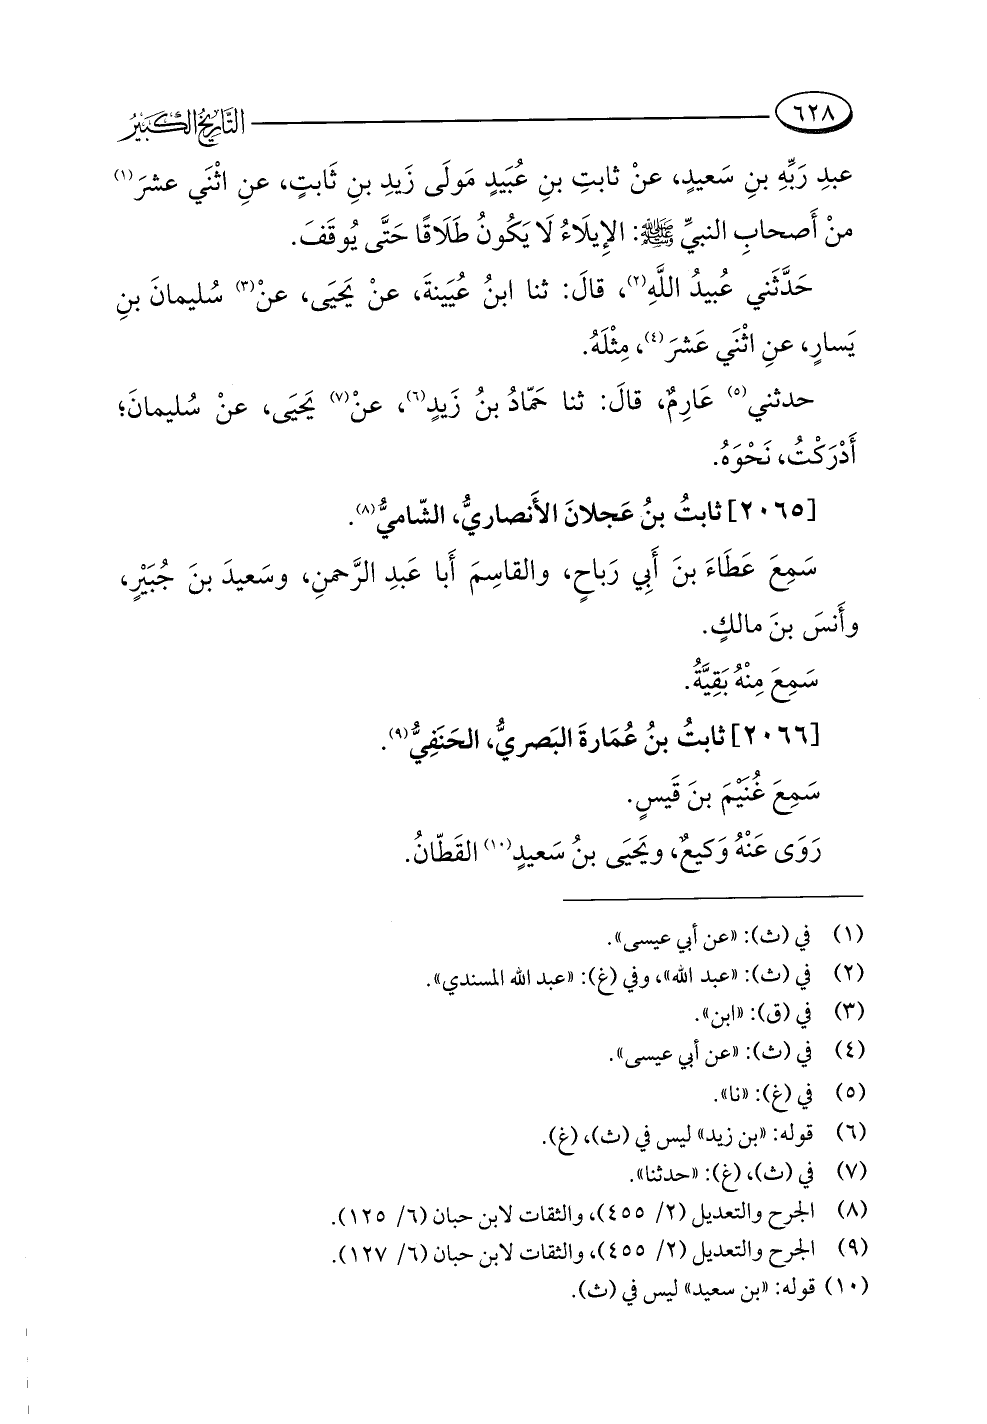 ٦٢٨
التَّارِيخُ الكَبِيرُ
عبدِ رَبِّهِ بنِ سَعيدٍ، عنْ ثابتِ بنِ عُبَيدٍ مَولَى زَيدِ بنِ ثَابتٍ، عنِ اثْنَي عشرَ(١)
منْ أَصحابِ النبيِّ ﷺ: الإِيلَاءُ لَا يَكُونُ طَلَاقًا حَتَّى يُوقَفَ.
حَدَّثَني عُبيدُ اللَّهِ(٢)، قالَ: ثنا ابنُ عُيَينةَ، عنْ يَحيَى، عنْ(٣) سُليمانَ بنِ
يَسارٍ، عنِ اثْنَي عَشَرَ(٤)، مِثْلَهُ.
حدثني(٥) عَارِمٌ، قالَ: ثنا حَمّادُ بنُ زَيدٍ(٦)، عنْ(٧) يَحيَى، عنْ سُليمانَ؛
أَدْرَكْتُ، نَحْوَهُ.
[٢٠٦٥] ثابتُ بنُ عَجلانَ الأَنصاريُّ، الشّاميُّ(٨).
سَمِعَ عَطَاءَ بنَ أَبِي رَباحٍ، والقاسِمَ أَبا عَبدِ الرَّحمنِ، وسَعيدَ بنَ جُبَيْرٍ،
وأَنسَ بنَ مالكٍ.
سَمِعَ مِنْهُ بَقِيَّةُ.
[٢٠٦٦] ثابتُ بنُ عُمَارةَ البَصريُّ، الحَنَفِيُّ(٩).
سَمِعَ غُنَيْمَ بنَ قَيسٍ.
رَوَى عَنْهُ وَكيعٌ، ويَحيَى بنُ سَعيدٍ(١٠) القَطّانُ.
(١) في (ث): «عن أبي عيسى».
(٢) في (ث): «عبد الله»، وفي (غ): «عبد الله المسندي».
(٣) في (ق): «ابن».
(٤) في (ث): «عن أبي عيسى».
(٥) في (غ): «نا».
(٦) قوله: «بن زيد» ليس في (ث)، (غ).
(٧) في (ث)، (غ): «حدثنا».
(٨) الجرح والتعديل (٢/ ٤٥٥)، والثقات لابن حبان (٦/ ١٢٥).
(٩) الجرح والتعديل (٢/ ٤٥٥)، والثقات لابن حبان (٦/ ١٢٧).
(١٠) قوله: «بن سعيد» ليس في (ث).